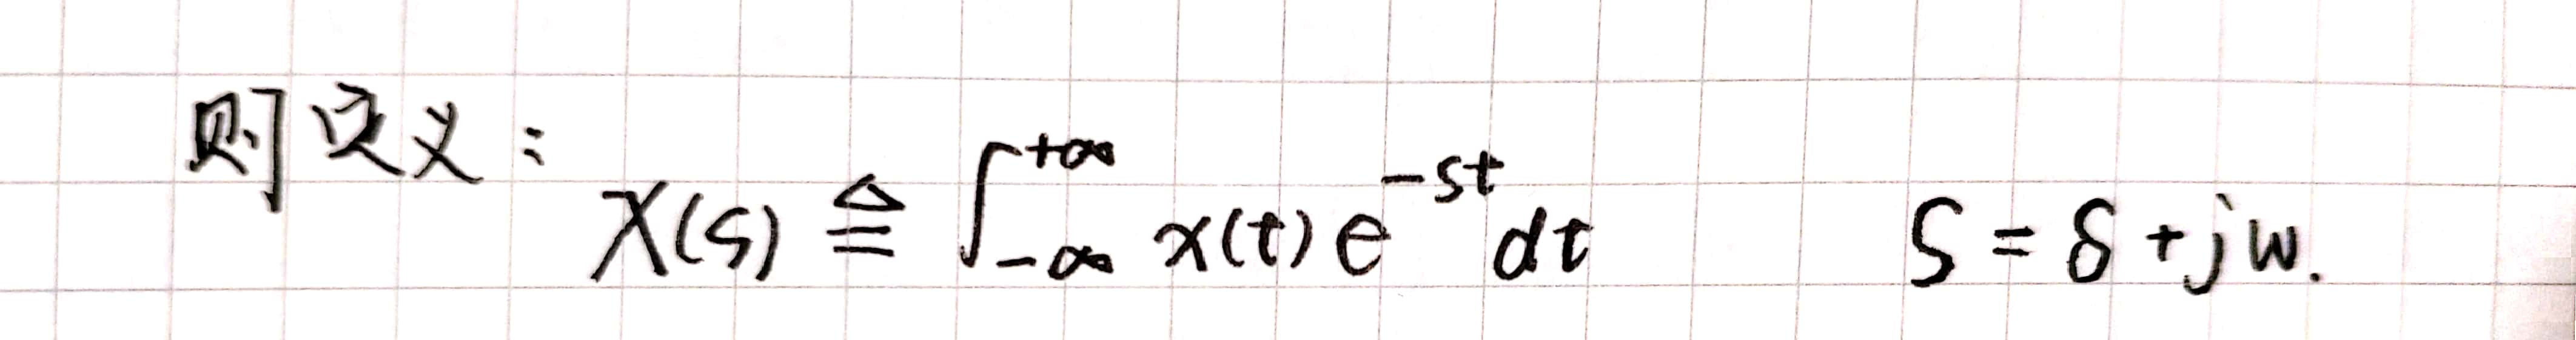 则定义：
X(s) ≜ ∫_{-∞}^{+∞} x(t) e^{-st} dt    s = δ + jw.